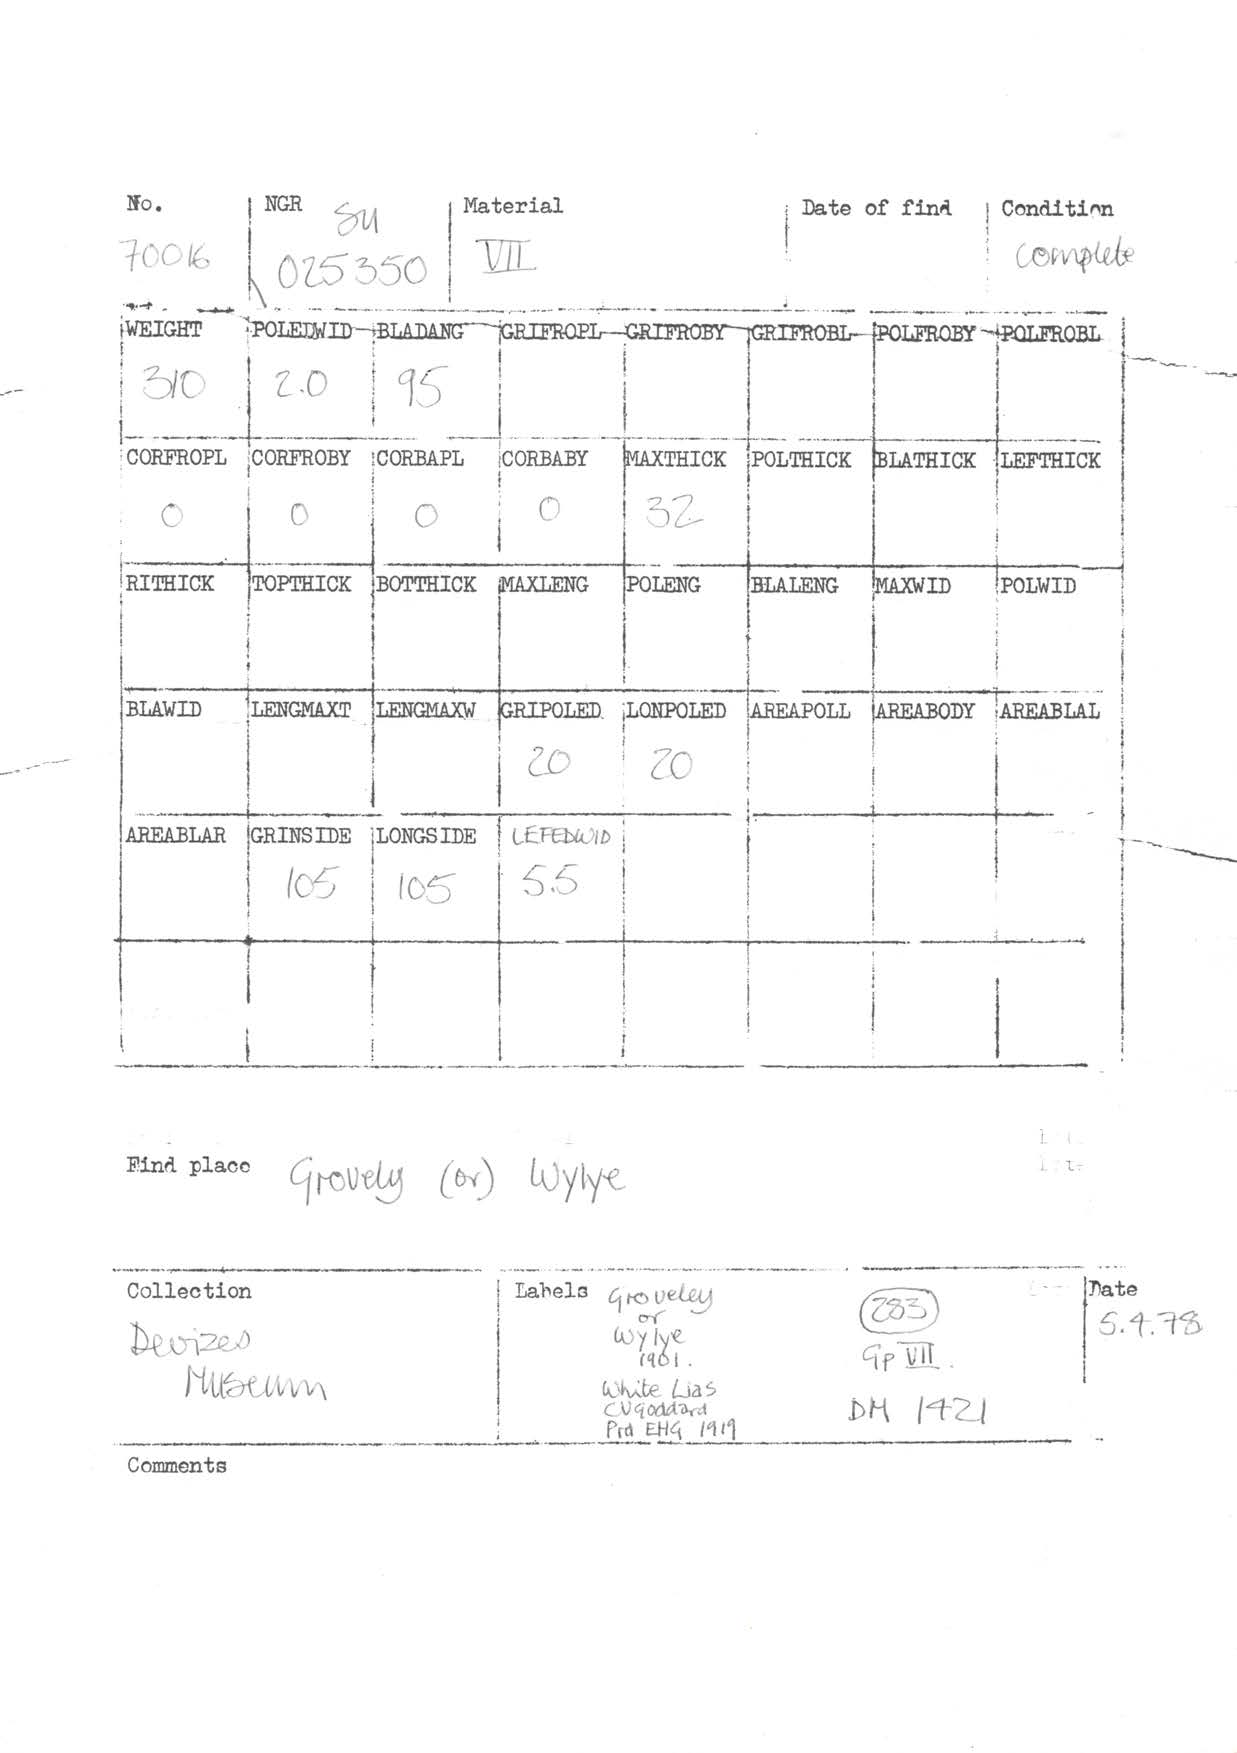 No. NGR SU Material Date of find Condition
70016 025350 VII complete
WEIGHT POLEDWID BLADANG GRIFROPL GRIFROBY GRIFROBL POLFROBY POLFROBL
310 2.0 95
CORFROPL CORFROBY CORBAPL CORBABY MAXTHICK POLTHICK BLATHICK LEFTHICK
0 0 0 0 32
RITHICK TOPTHICK BOTTHICK MAXLENG POLENG BLALENG MAXWID POLWID
BLAWID LENGMAXT LENGMAXW GRIPOLED LONPOLED AREAPOLL AREABODY AREABLAL
20 20
AREABLAR GRINSIDE LONGSIDE LEFEDWID
105 105 5.5
Find place Grovely (or) Wylye
Collection
Devizes
Museum
Labels Groveley
or
Wylye
1901.
White Lias
CVGoddard
Prd EHG 1919
283
Gp VII.
DM 1421
Date
5.4.78
Comments